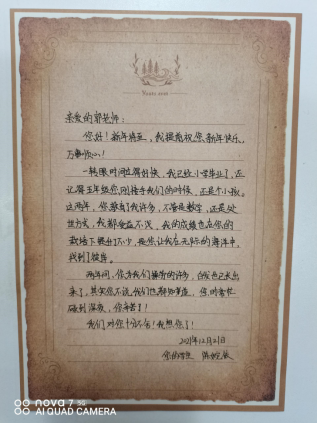 亲爱的郭老师:
您好!新年将至,我提前祝您新年快乐,
万事顺心!
一转眼时间过得好快,我已经小学毕业了,还
记得五年级您刚接手我们的时候,还是个小孩。
这两年,您教会我许多,不管是数学,还是处
世方式,我都受益不浅,我的成绩也在您的
栽培下提升了不少,是您让我在无际的海洋中
找到了彼岸。
两年间,您为我们操劳的许多,白发也已长出
来了,其实您不说,我们也都知道,您时常忙
碌到深夜,您辛苦了!
我们对您十分不舍!我想您了!
2021年12月21日
您的学生 陈
nova 7 5G
AI QUAD CAMERA